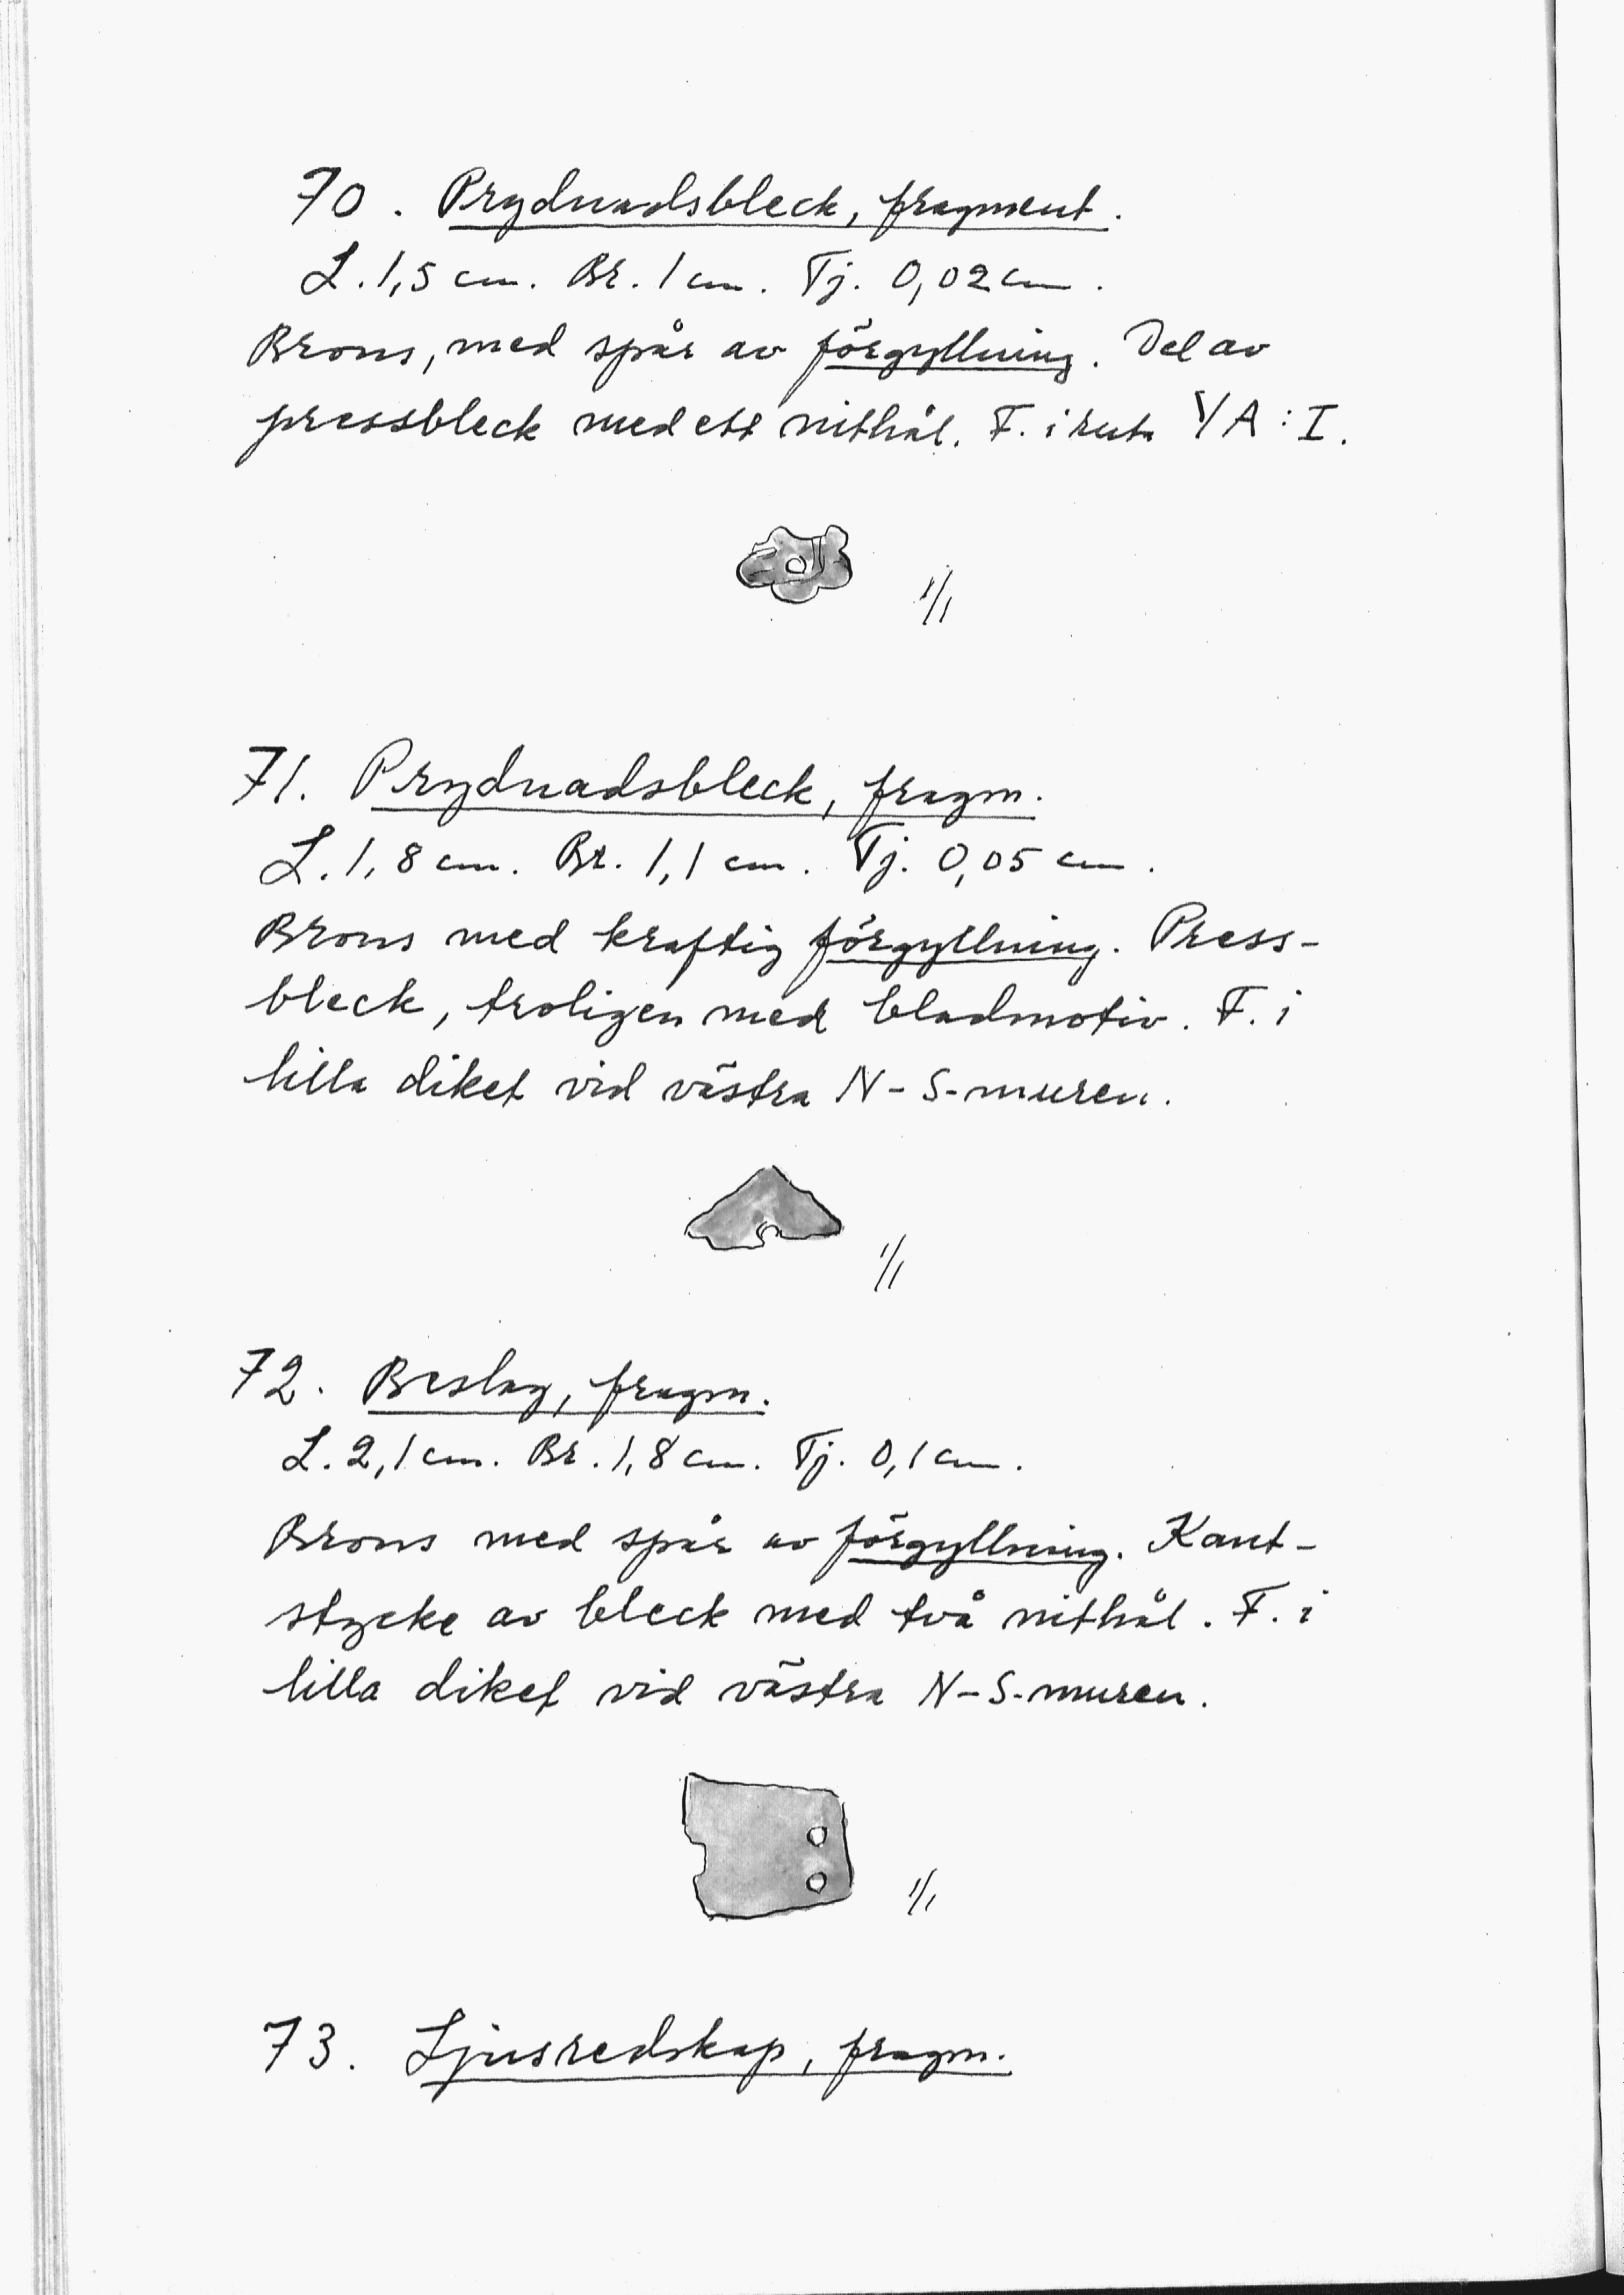 70. Prydnadsbleck, fragment.
L. 1,5 cm. Br. 1 cm. Tj. 0,02 cm.
Brons, med spår av förgyllning. Del av
pressbleck med ett nithål. F. i ruta A : I.
1/1
71. Prydnadsbleck, fragm.
L. 1,8 cm. Br. 1,1 cm. Tj. 0,05 cm.
Brons med kraftig förgyllning. Press-
bleck, troligen med bladmotiv. F. i
lilla diket vid västra N-S-muren.
1/1
72. Beslag, fragm.
L. 2,1 cm. Br. 1,8 cm. Tj. 0,1 cm.
Brons med spår av förgyllning. Kant-
stycke av bleck med två nithål. F. i
lilla diket vid västra N-S-muren.
1/1
73. Ljusredskap, fragm.